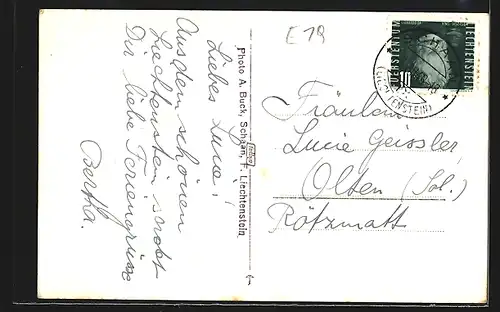 E 19
Liebes Lucie!
Aus dem schönen
Liechtenstein sendet
Dir liebe Feriengrüsse
Bertha.
Photo A. Buck, Schaan, F. Liechtenstein
FÜRSTENTUM
LIECHTENSTEIN
10
(LIECHTENSTEIN)
Fräulein
Lucie Geissler
Olten (Sol.)
Rötzmatt